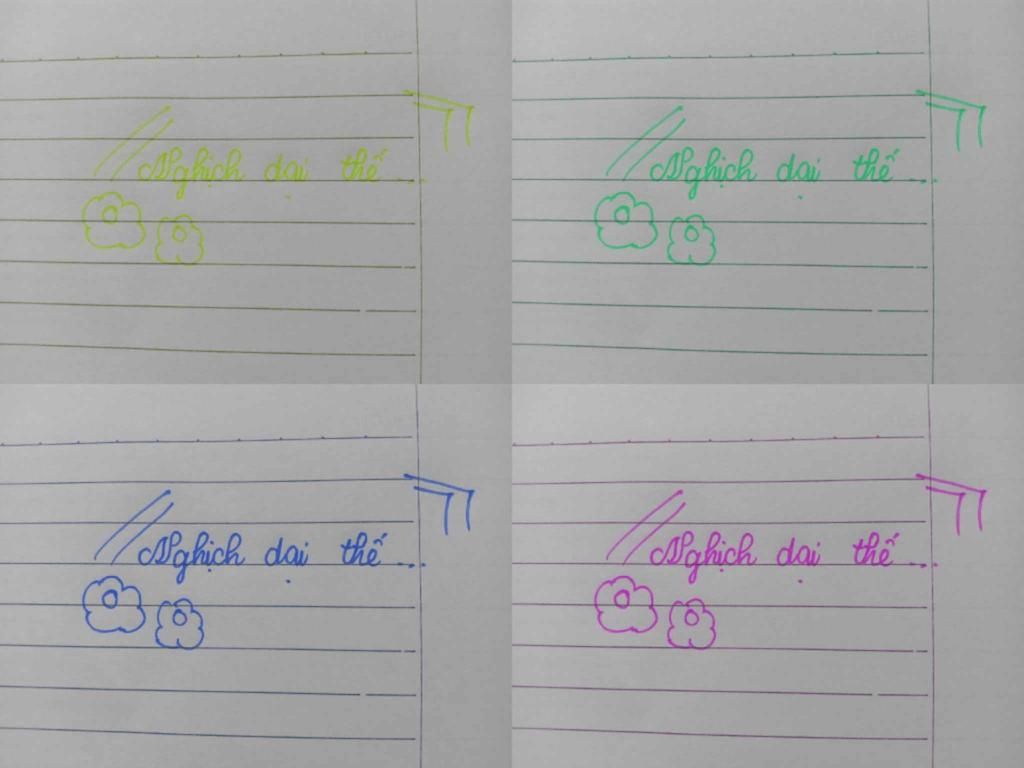 Nghịch dại thế...
Nghịch dại thế...
Nghịch dại thế...
Nghịch dại thế...